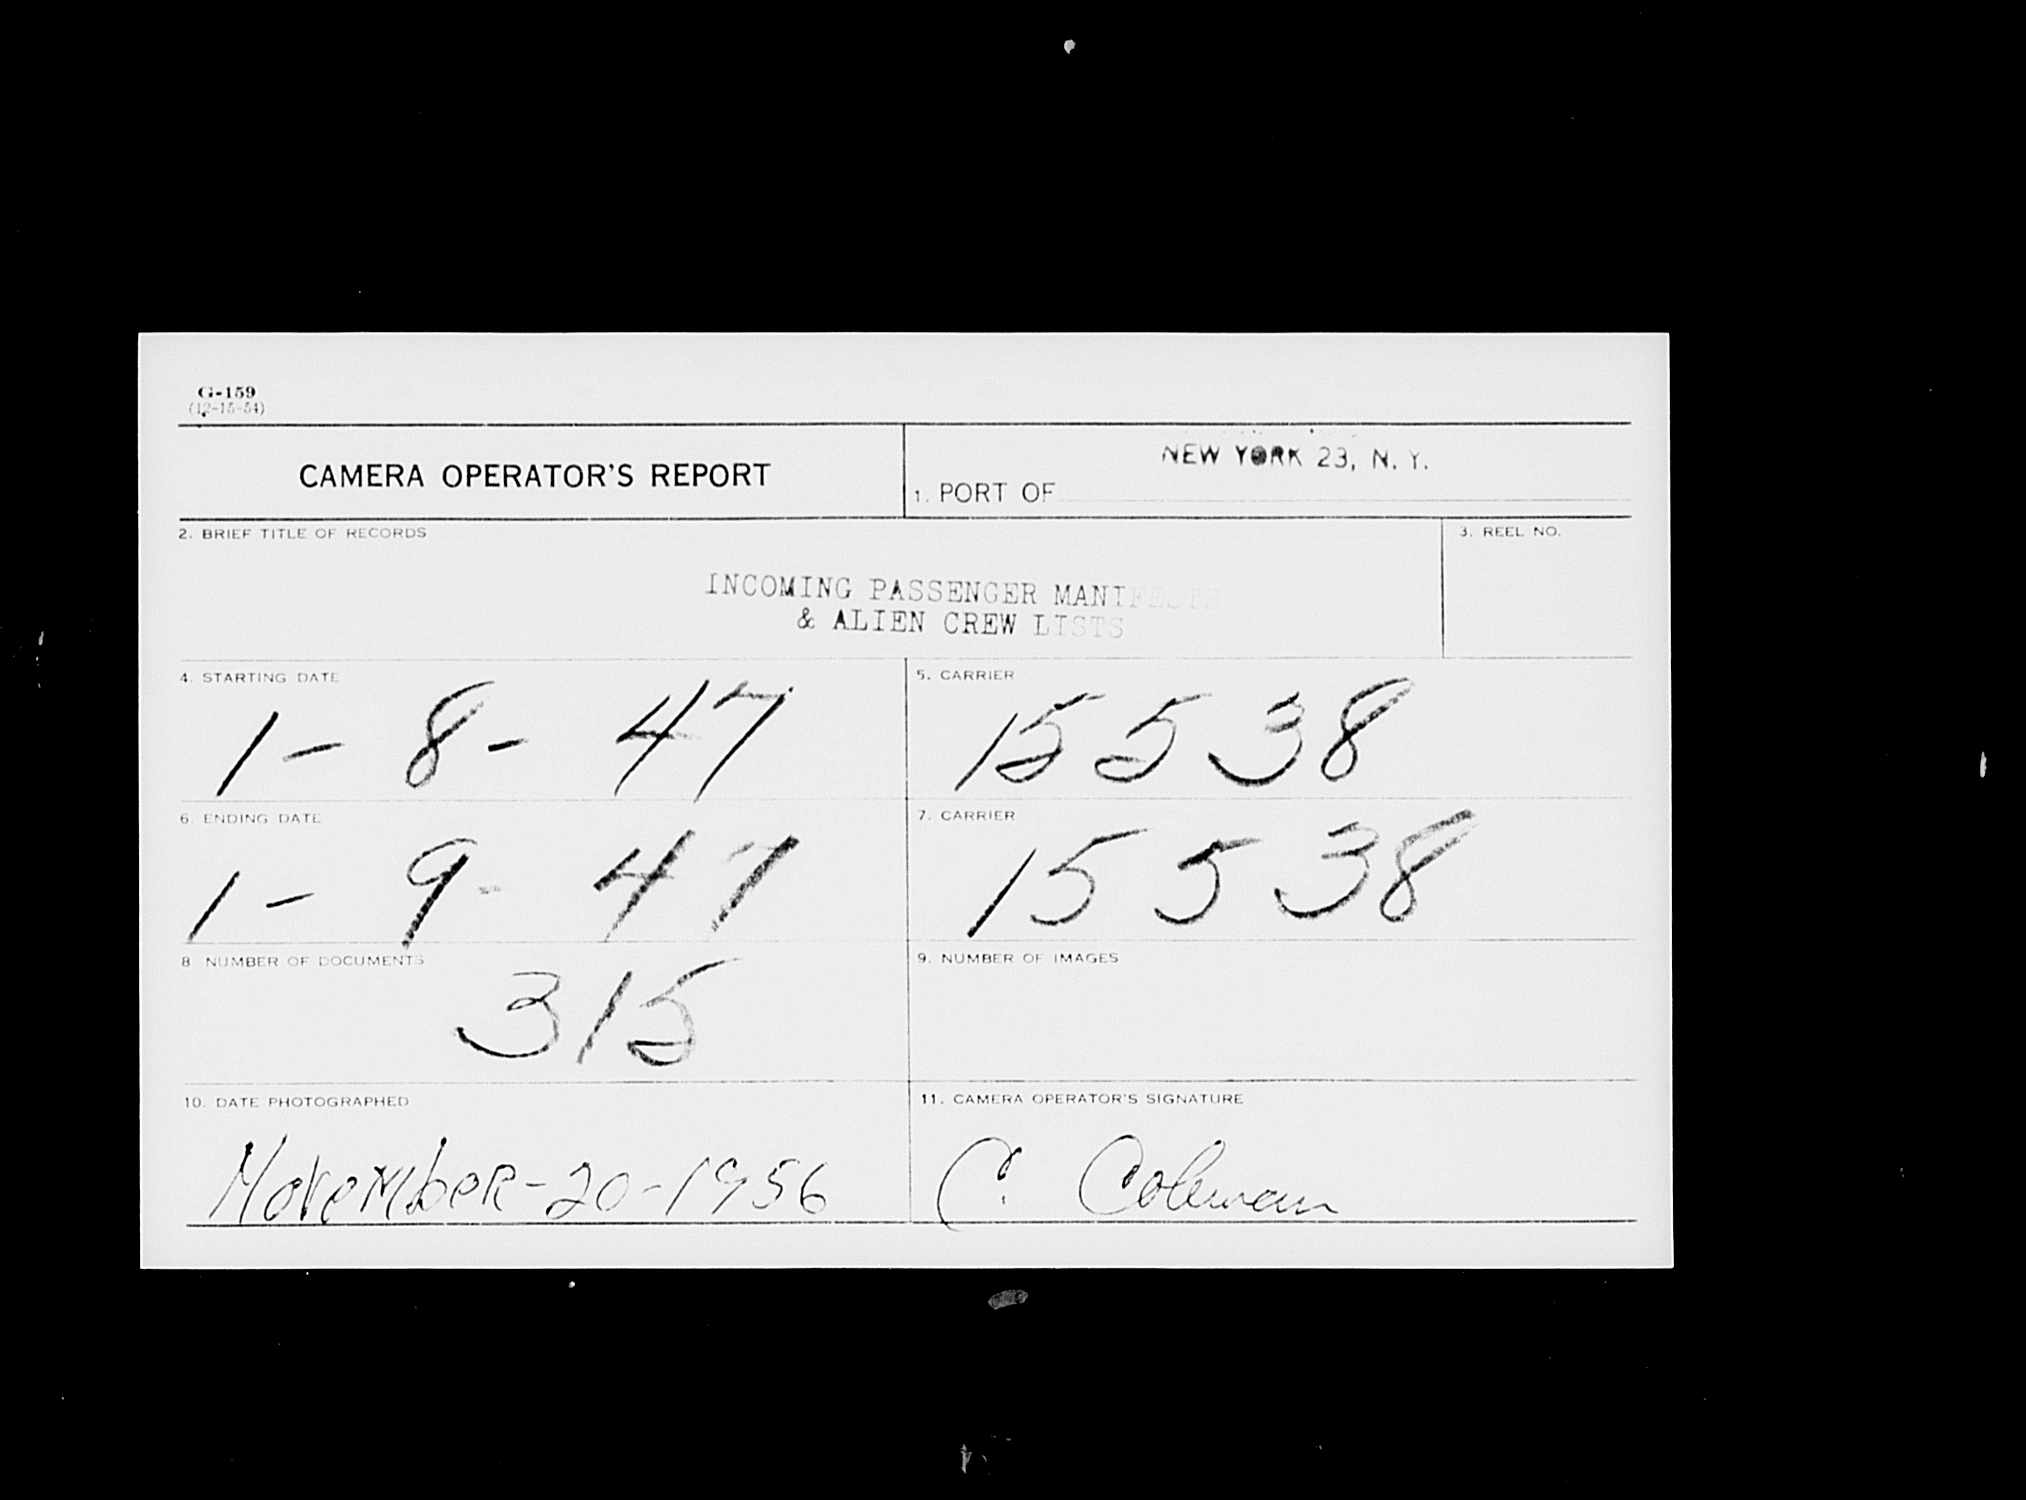 G-159
(12-15-54)
CAMERA OPERATOR'S REPORT
1. PORT OF NEW YORK 23, N. Y.
2. BRIEF TITLE OF RECORDS
3. REEL NO.
INCOMING PASSENGER MANIFESTS
& ALIEN CREW LISTS
4. STARTING DATE
1-8-47
5. CARRIER
15538
6. ENDING DATE
1-9-47
7. CARRIER
15538
8 NUMBER OF DOCUMENTS
315
9. NUMBER OF IMAGES
10. DATE PHOTOGRAPHED
November-20-1956
11. CAMERA OPERATOR'S SIGNATURE
C. Coleman